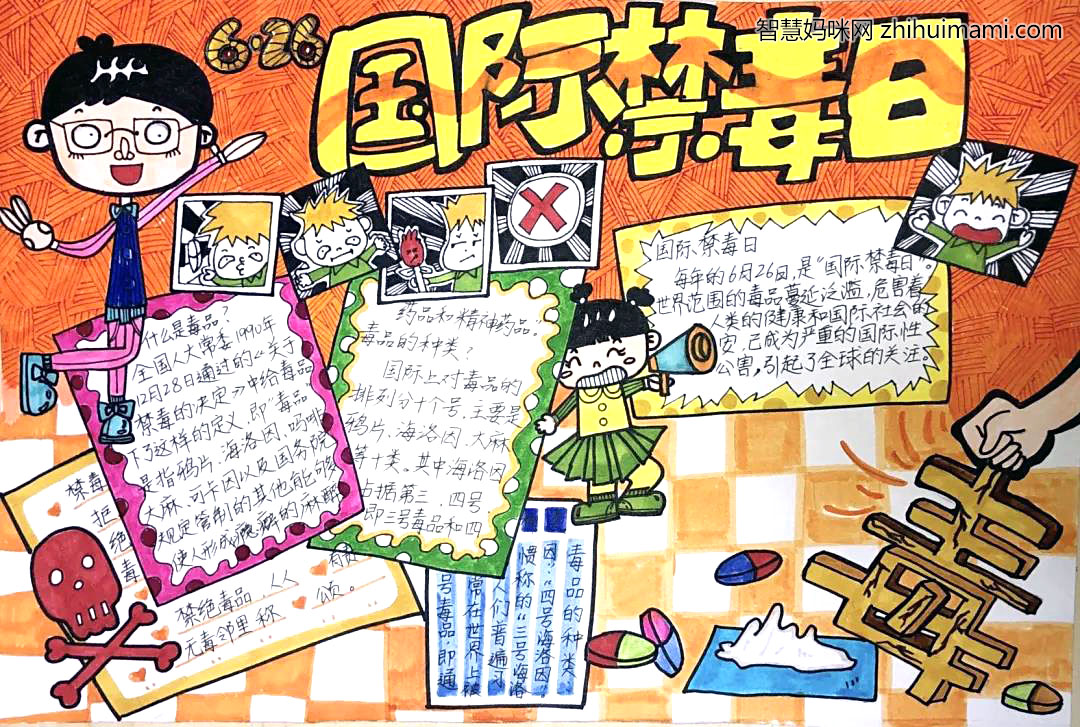 智慧妈咪网 zhihuimami.com
6·26
国际禁毒日
国际禁毒日
每年的6月26日,是“国际禁毒日”。
世界范围的毒品蔓延泛滥,危害着
人类的健康和国际社会的
安,已成为严重的国际性
公害,引起了全球的关注。
什么是毒品?
全国人大常委1990年
12月28日通过的《关于
禁毒的决定》中给毒品
下了这样的定义,即“毒品
是指鸦片,海洛因,吗啡
大麻,可卡因以及国务院
规定管制的其他能够
使人形成瘾癖的麻醉
药品和精神药品。
毒品的种类?
国际上对毒品的
排列分十个号,主要是
鸦片、海洛因、大麻
等十类。其中海洛因
占据第三、四号
即三号毒品和四
号毒品即通
常在世界上被
人们者遍习
惯称的“三号海洛
因”:“四号海洛因”
毒品的种类:
禁毒
护
绝
毒
禁绝毒品,人人
颂。
无毒邻里称
毒